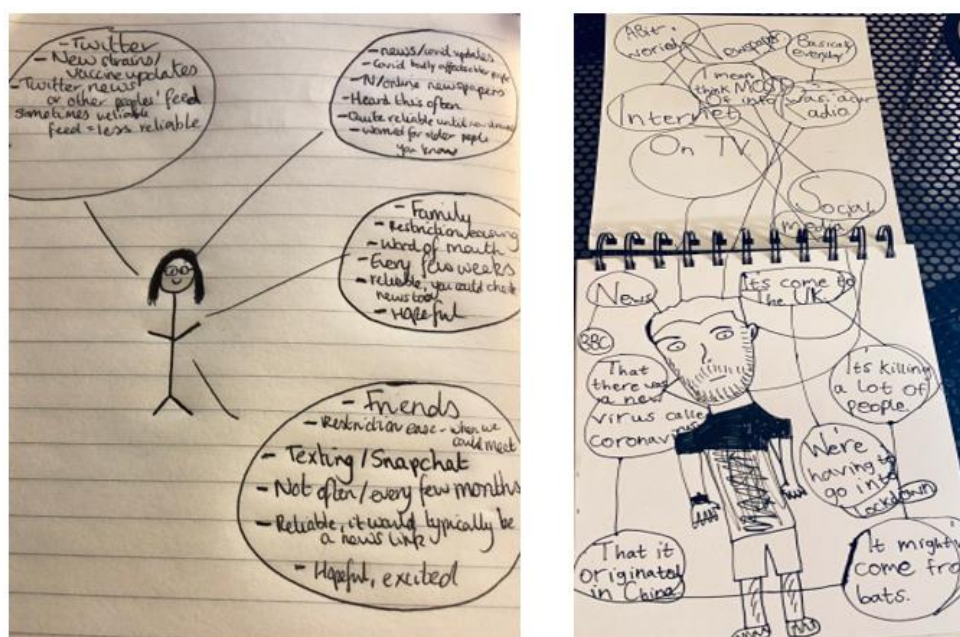 - Twitter
- New strains/
vaccine updates
- Twitter news
or other peoples' feed
sometimes
feed = less reliable
- news/covid updates
- Covid badly affects older people
- N/online newspapers
- Heard this often
- Quite reliable until
- Worried for older people
you know
- Family
- Restriction easing
- Word of mouth
- Every few weeks
- reliable, you could check
news too
- Hopeful
- Friends
- Restriction ease - when we
could meet
- Texting/Snapchat
- Not often/every few months
- Reliable, it would typically be
a news link
- Hopeful, excited
A bit
worried
Newspaper
Basically
everyday
I mean I
think MOST
Of info
was
Radio
Internet
On TV.
Social
media
News
BBC
It's come to
The UK.
That
there was
a new
virus called
coronavirus
It's killing
a lot of
people.
We're
having to
go into
Lockdown
That it
originated
in China
It might
come from
bats.